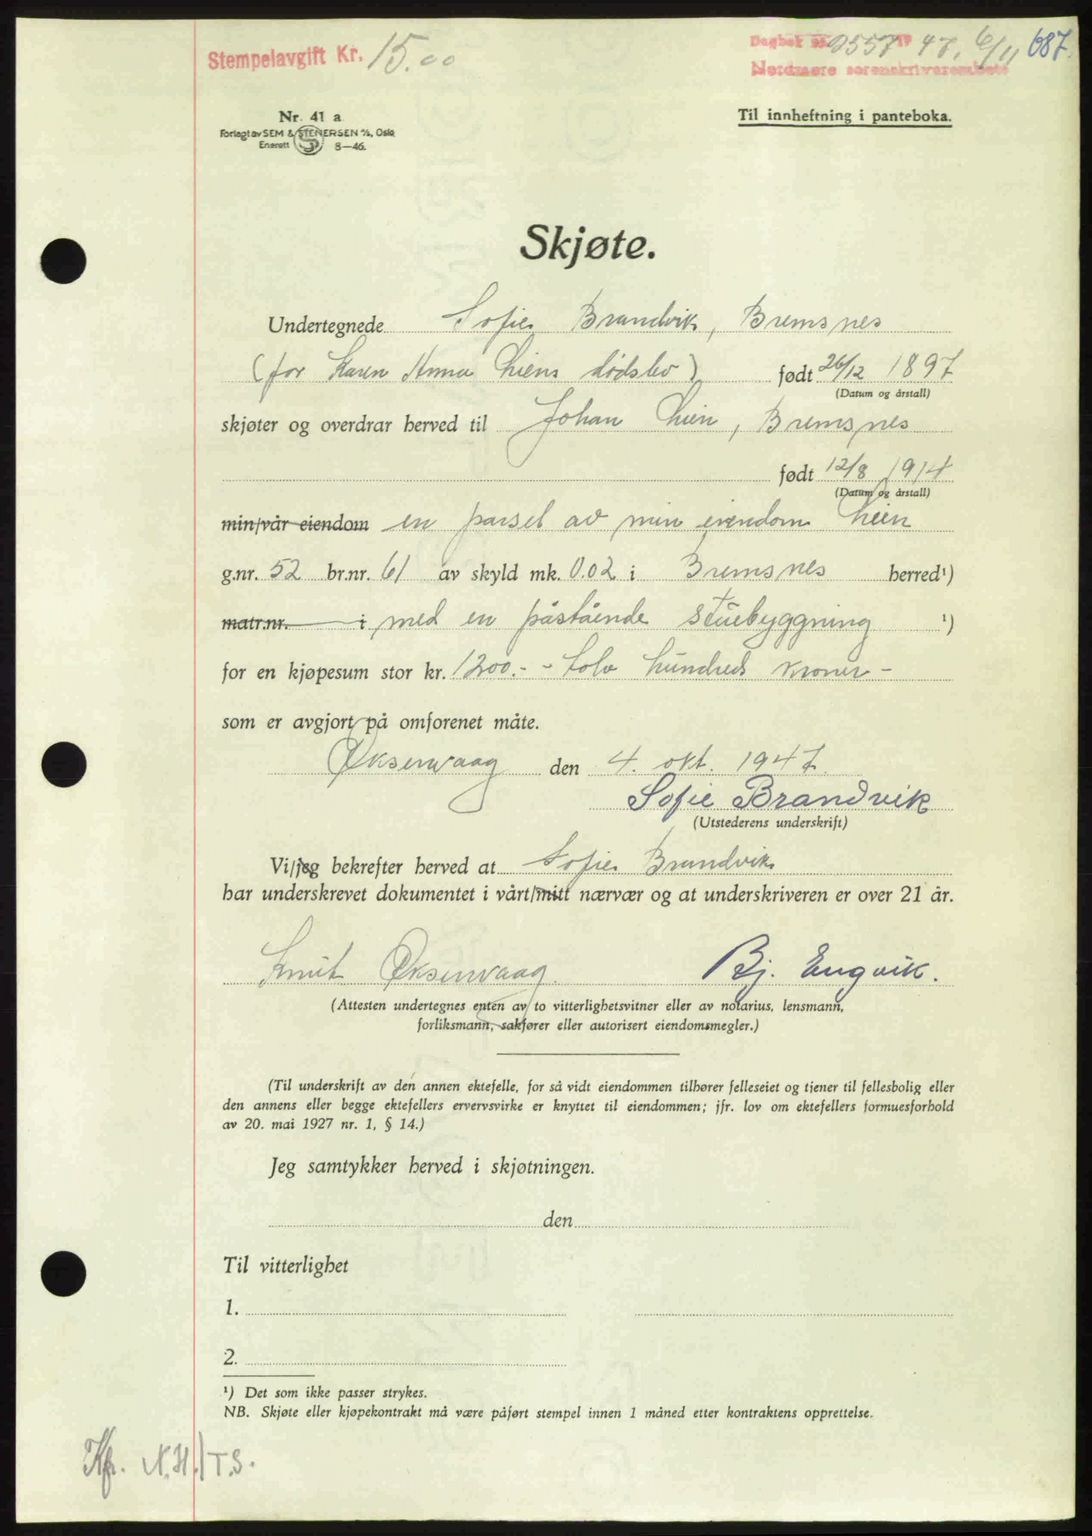 Stempelavgift Kr. 15.00
Dagbok 2557 1947, 6/11 687.
Nordmøre sorenskriverembete
Nr. 41 a
Til innheftning i panteboka.
Forlagt av SEM & STENERSEN A/S, Oslo
Enerett 8-46.
Skjøte.
Undertegnede Sofie Brandvik, Bremsnes
(for Karen Anna Liens dødsbo) født 26/12 1897
(Datum og årstall)
skjøter og overdrar herved til Johan Lien, Bremsnes
født 12/8 1914
(Datum og årstall)
min/vår eiendom en parsel av min eiendom Lien
g.nr. 52 br.nr. 61 av skyld mk. 0.02 i Bremsnes herred¹)
matr.nr. i med en påstående stuebyggning ¹)
for en kjøpesum stor kr. 1200.- - tolv hundred kroner -
som er avgjort på omforenet måte.
Øksenvaag den 4. okt. 1947.
Sofie Brandvik
(Utstederens underskrift)
Vi/jeg bekrefter herved at Sofie Brandvik
har underskrevet dokumentet i vårt/mitt nærvær og at underskriveren er over 21 år.
Knut Øksenvaag. Bj. Engvik.
(Attesten undertegnes enten av to vitterlighetsvitner eller av notarius, lensmann,
forliksmann, sakfører eller autorisert eiendomsmegler.)
(Til underskrift av den annen ektefelle, for så vidt eiendommen tilhører felleseiet og tjener til fellesbolig eller
den annens eller begge ektefellers ervervsvirke er knyttet til eiendommen; jfr. lov om ektefellers formuesforhold
av 20. mai 1927 nr. 1, § 14.)
Jeg samtykker herved i skjøtningen.
den
Til vitterlighet
1.
2.
¹) Det som ikke passer strykes.
NB. Skjøte eller kjøpekontrakt må være påført stempel innen 1 måned etter kontraktens opprettelse.
Kfr. N.H./T.S.